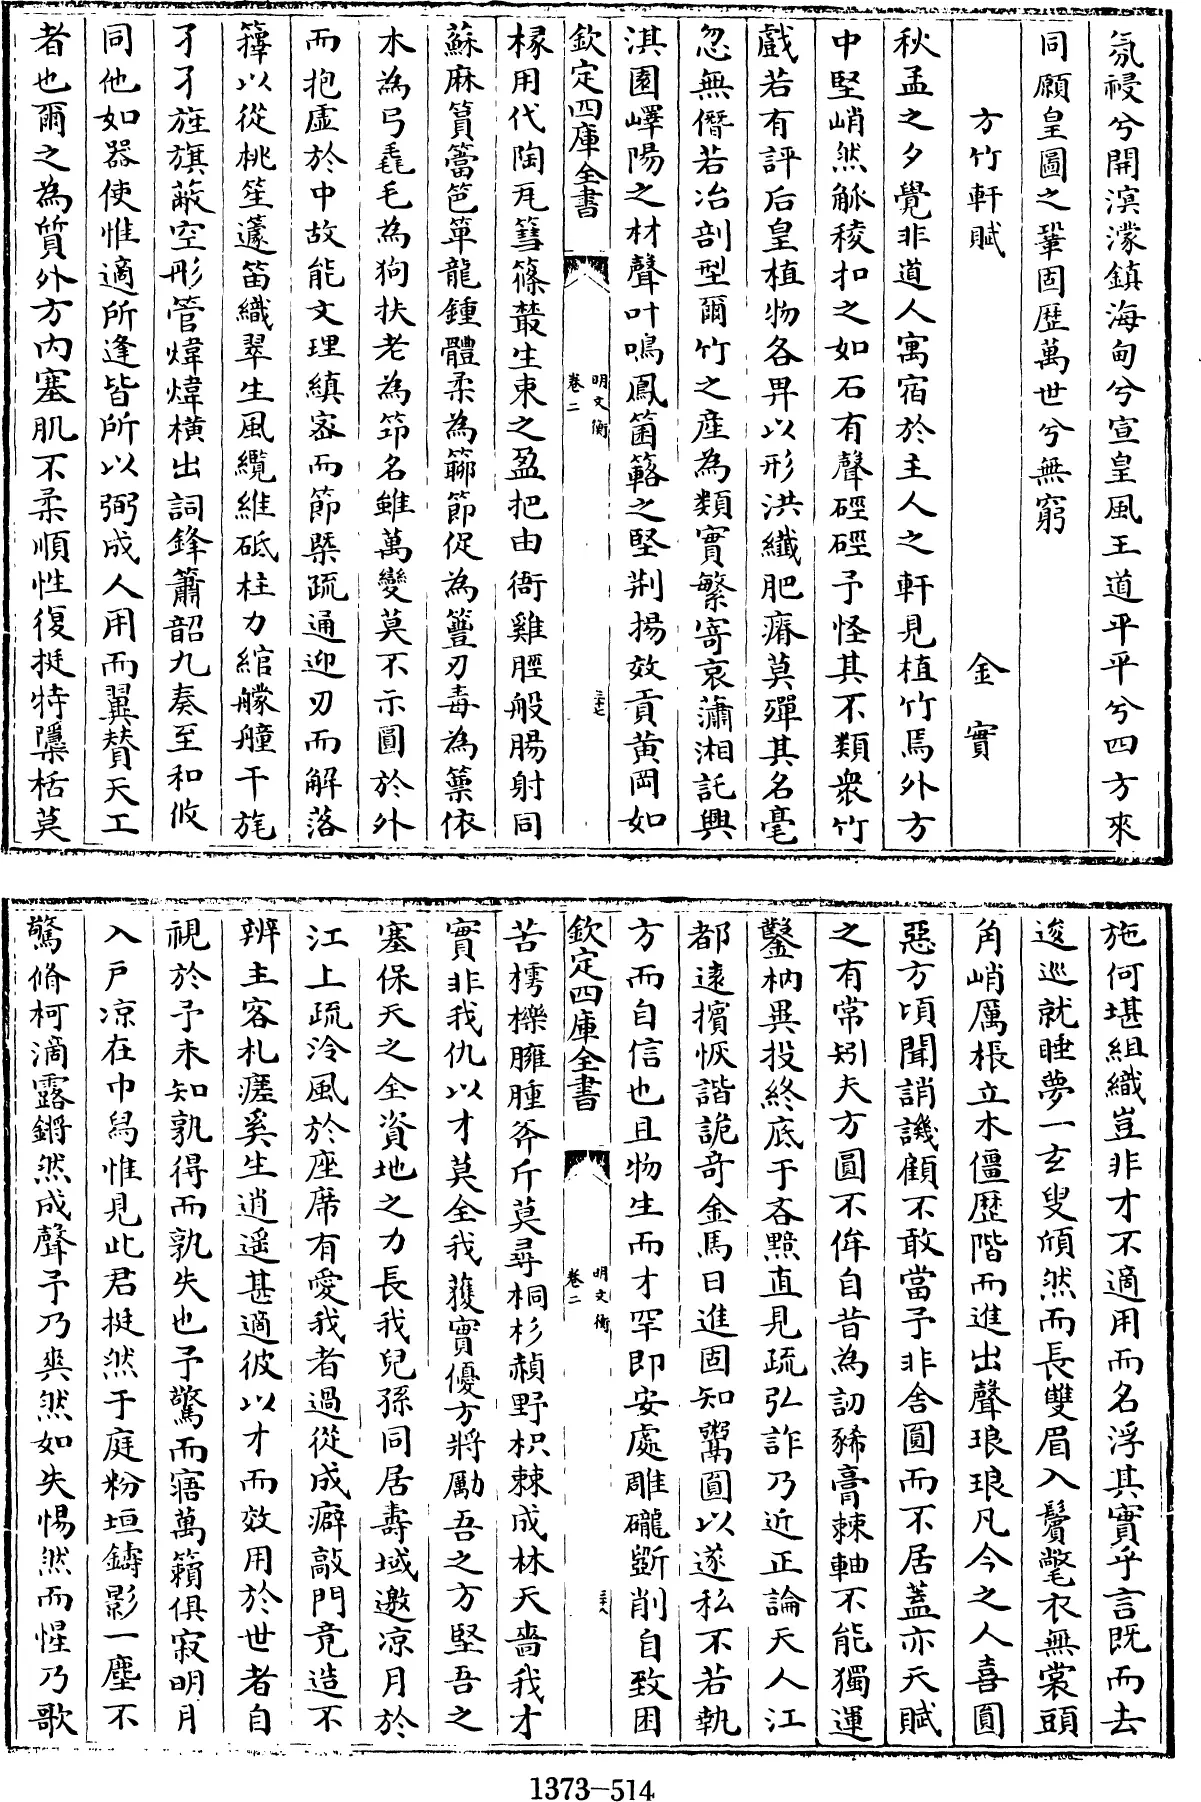 氛祲兮開溟濛鎮海甸兮宣皇風王道平平兮四方來
同願皇圖之鞏固歷萬世兮無窮
方竹軒賦 金實
秋孟之夕覺非道人寓宿於主人之軒見植竹焉外方
中堅峭然觚稜扣之如石有聲硜硜予怪其不類衆竹
戲若有評后皇植物各畀以形洪纖肥瘠莫殫其名毫
忽無僭若冶剖型爾竹之產為類實繁寄哀瀟湘託興
淇園嶧陽之材聲叶鳴鳳箘簵之堅荆揚效貢黄岡如
欽定四庫全書
明文衡
卷二
三十七
椽用代陶瓦篲篠叢生束之盈把由衙雞脛般腸射同
蘇麻篔簹笆箪龍鍾體柔為簩節促為簹刃毒為䈽依
木為弓毳毛為狗扶老為笻名雖萬變莫不示圓於外
而抱虛於中故能文理縝宻而節槩疏通迎刃而解落
籜以從桃笙籧笛織翠生風纜維砥柱力綰艨艟干旄
孑孑旌旗蔽空彤管煒煒橫出詞鋒簫韶九奏至和攸
同他如器使惟適所逢皆所以弼成人用而翼賛天工
者也爾之為質外方内塞肌不柔順性復挺特隱栝莫
施何堪組織豈非才不適用而名浮其實乎言既而去
逡巡就睡夢一玄叟頎然而長雙眉入鬢氅衣無裳頭
角峭厲棖立木僵歷階而進出聲琅琅凡今之人喜圓
惡方頃聞誚譏顧不敢當予非舍圓而不居蓋亦天賦
之有常矧夫方圓不侔自昔為訒豨膏棘軸不能獨運
鑿枘異投終底于吝黯直見疏弘詐乃近正論天人江
都遠擯恢諧詭奇金馬日進固知鬻圓以遂私不若執
方而自信也且物生而才罕即安處雕礲斵削自致困
欽定四庫全書
明文衡
卷二
三十八
苦樗櫟臃腫斧斤莫尋桐杉赬野枳棘成林天嗇我才
實非我仇以才莫全我獲實優方將勵吾之方堅吾之
塞保天之全資地之力長我兒孫同居壽域邀凉月於
江上疏泠風於座席有愛我者過從成癖敲門竟造不
辨主客札瘥奚生逍遥甚適彼以才而效用於世者自
視於予未知孰得而孰失也予驚而寤萬籟俱寂明月
入戶凉在巾舄惟見此君挺然于庭粉垣鑄影一塵不
驚脩柯滴露鏘然成聲予乃爽然如失惕然而惺乃歌
1373-514